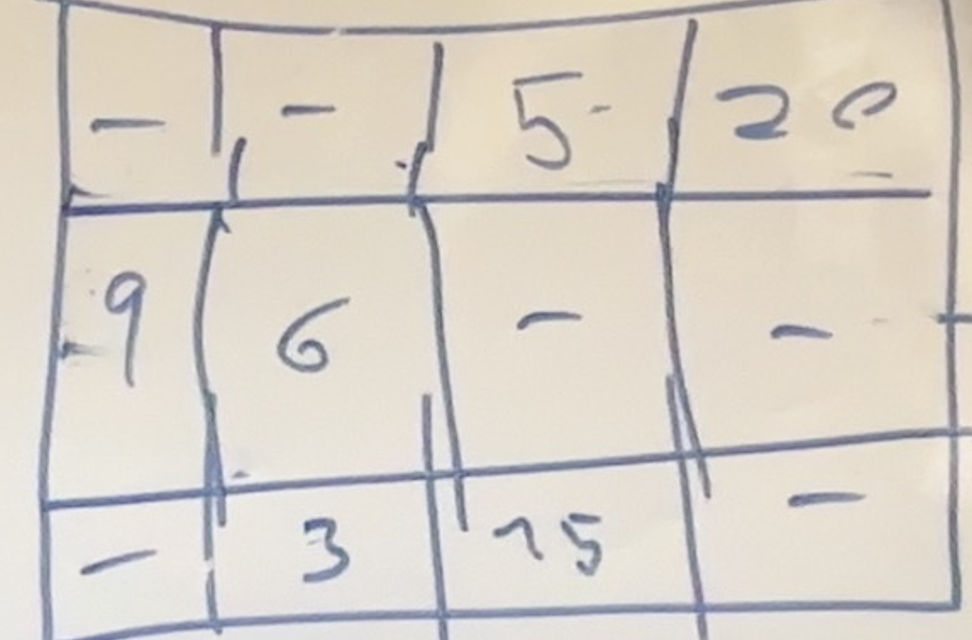 - - 5 20
9 6 - -
- 3 15 -